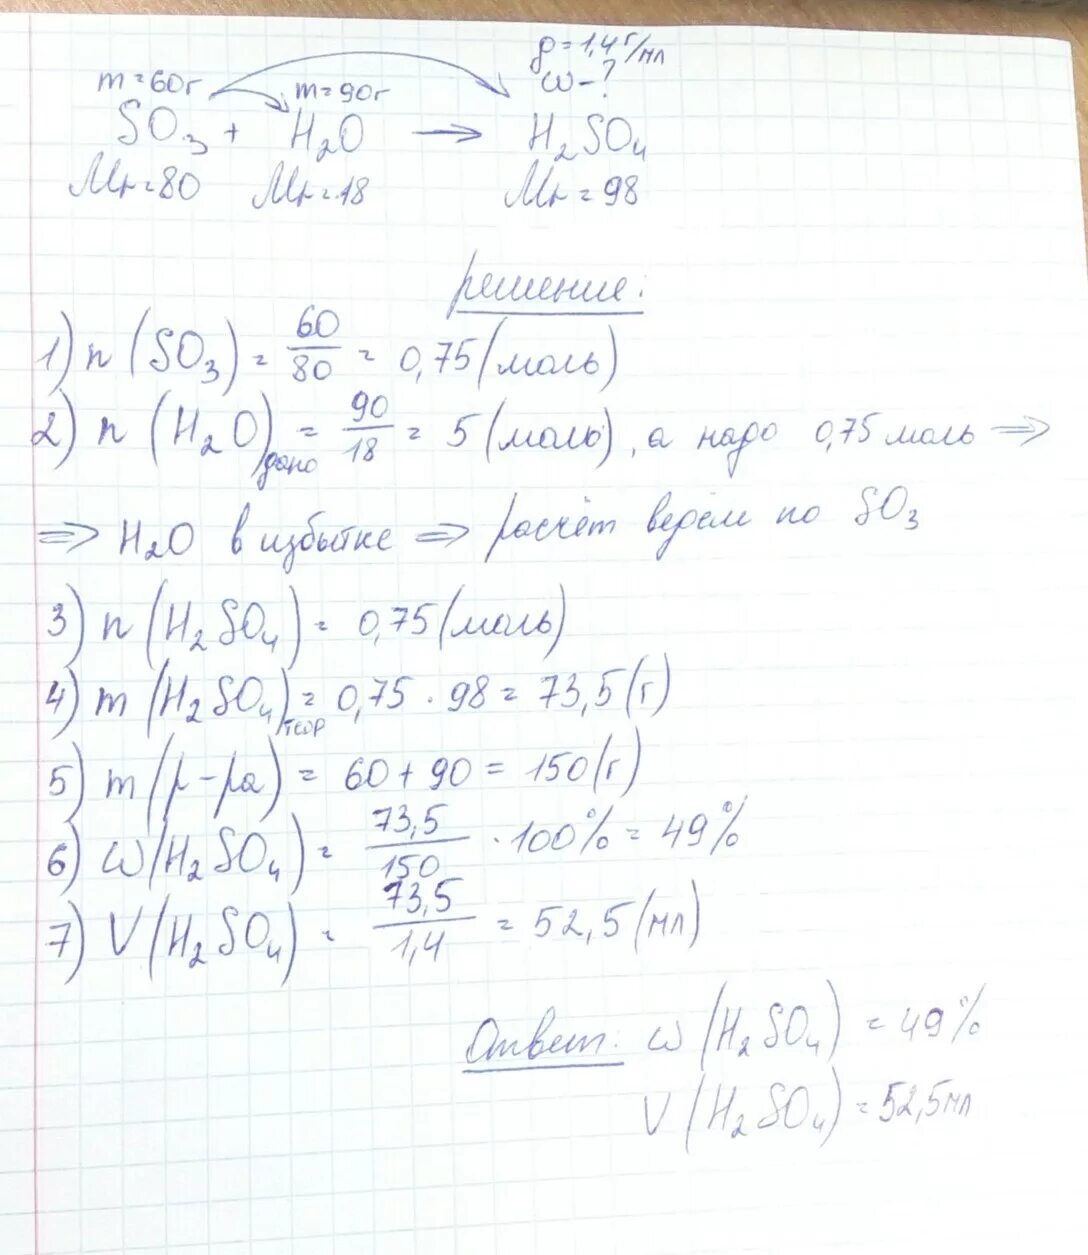 ρ=1,4г/мл
m=60г m=90г ω-?
SO₃ + H₂O → H₂SO₄
Mr=80 Mr=18 Mr=98
решение:
1) n(SO₃) = 60/80 = 0,75 (моль)
2) n(H₂O)дано = 90/18 = 5 (моль), а надо 0,75 моль ⇒
⇒ H₂O в избытке ⇒ расчёт ведём по SO₃
3) n(H₂SO₄) = 0,75 (моль)
4) m(H₂SO₄)теор = 0,75 · 98 = 73,5 (г)
5) m(р-ра) = 60 + 90 = 150 (г)
6) ω(H₂SO₄) = 73,5/150 · 100% = 49%
7) V(H₂SO₄) = 73,5/1,4 = 52,5 (мл)
Ответ: ω(H₂SO₄) = 49%
V(H₂SO₄) = 52,5мл